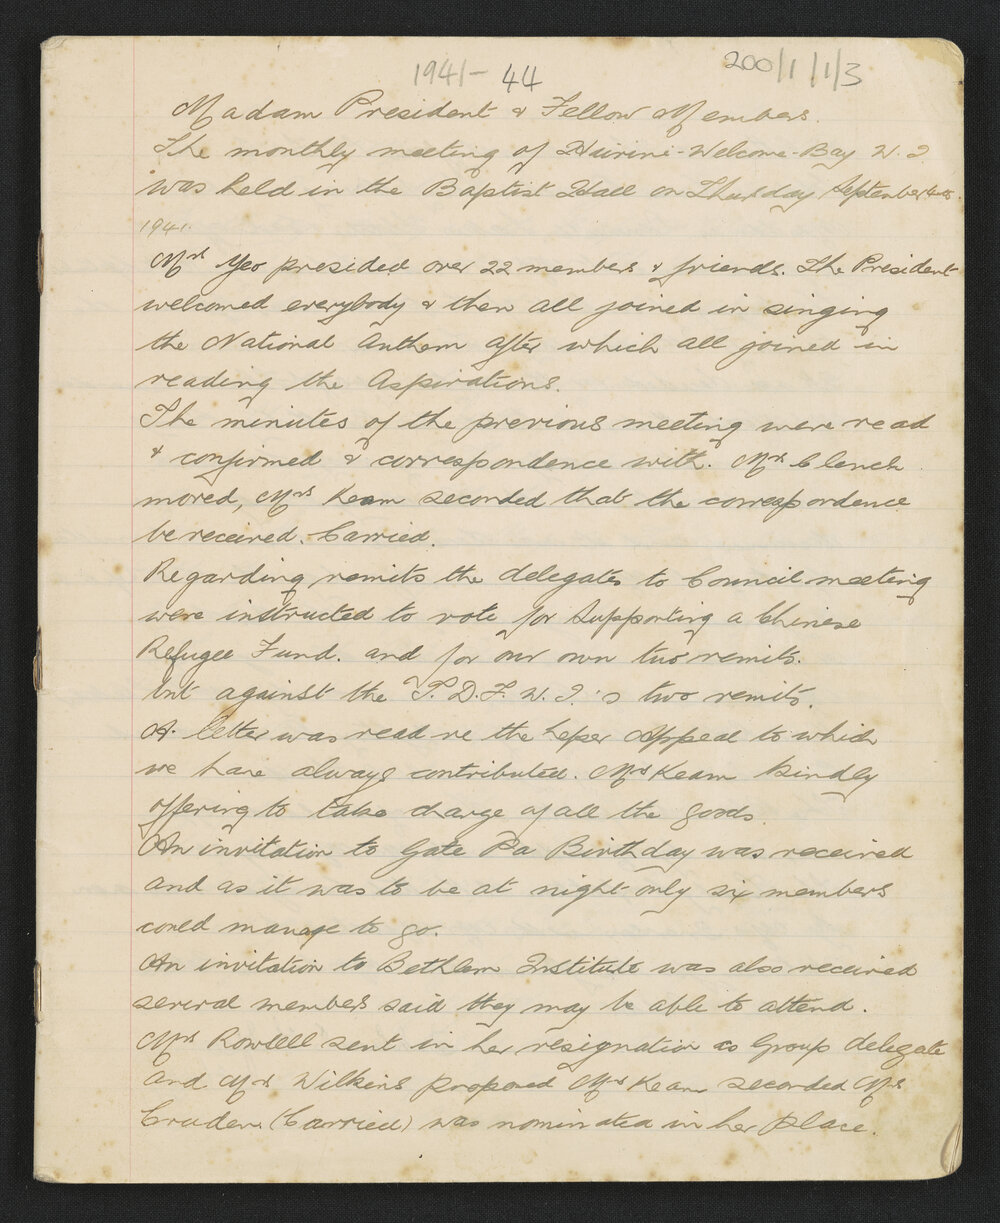 1941- 44
200/1/1/3
Madam President & Fellow Members.
The monthly meeting of Hairini-Welcome-Bay W.I
was held in the Baptist Hall on Thursday September 4th
1941.
Mrs Yeo presided over 22 members & friends. The President
welcomed everybody & then all joined in singing
the National Anthem after which all joined in
reading the Aspirations.
The minutes of the previous meeting were read
& confirmed & correspondence with. Mrs Clench
moved, Mrs Keam seconded that the correspondence
be received. Carried.
Regarding remits the delegates to Council meeting
were instructed to vote for supporting a Chinese
Refugee Fund. and for our own two remits.
but against the T.D.F.W.I.'s two remits.
A letter was read re the leper Appeal to which
we have always contributed. Mrs Keam kindly
offering to take charge of all the goods.
An invitation to Gate Pa Birthday was received
and as it was to be at night only six members
could manage to go.
An invitation to Bethlem Institute was also received
several members said they may be able to attend.
Mrs Rowsell sent in her resignation as Group delegate
and Mrs Wilkins proposed Mrs Keam seconded Mrs
Cruden (Carried) was nominated in her place.